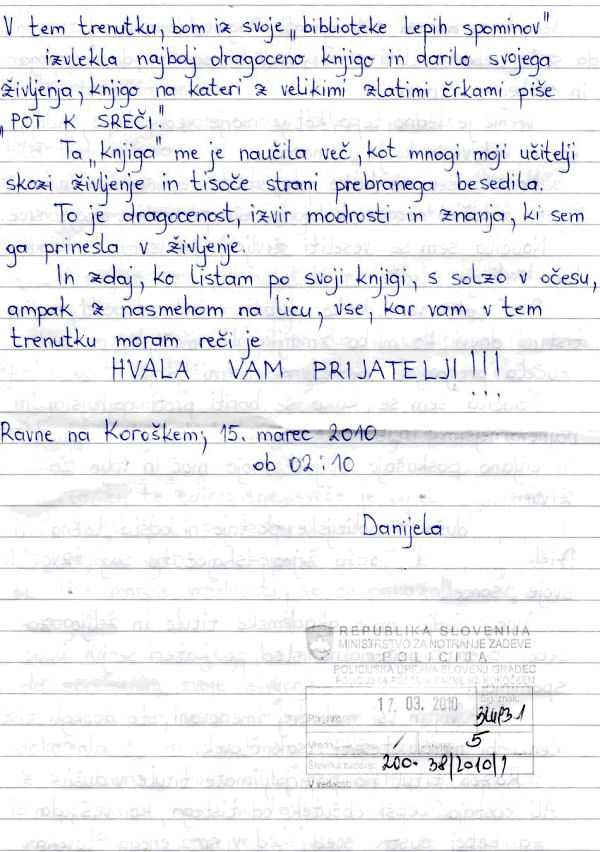 V tem trenutku, bom iz svoje „biblioteke lepih spominov"
izvlekla najbolj dragoceno knjigo in darilo svojega
življenja, knjigo na kateri z velikimi zlatimi črkami piše
„POT K SREČI."
Ta „knjiga" me je naučila več, kot mnogi moji učitelji
skozi življenje in tisoče strani prebranega besedila.
To je dragocenost, izvir modrosti in znanja, ki sem
ga prinesla v življenje.
In zdaj, ko listam po svoji knjigi, s solzo v očesu,
ampak z nasmehom na licu, vse, kar vam v tem
trenutku moram reči je
HVALA VAM PRIJATELJI!!!
Ravne na Koroškem, 15. marec 2010
ob 02:10
Danijela
REPUBLIKA SLOVENIJA
MINISTRSTVO ZA NOTRANJE ZADEVE
POLICIJA
POLICIJSKA UPRAVA SLOVENJ GRADEC
POLICIJSKA POSTAJA RAVNE NA KOROŠKEM
Prejeto: 17. 03. 2010 Sig. znak:
Vredn.: / 5
Številka zadeve: 200-38/2010/1
V vednost: